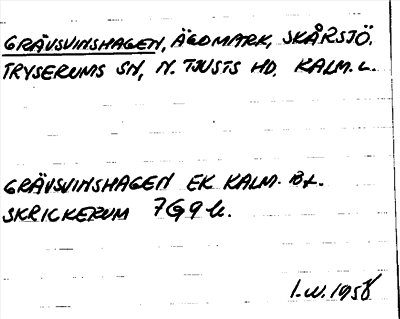 GRÄVSVINSHAGEN, ÄGOMARK, SKÅRSJÖ.
TRYSERUMS SN, N. TJUSTS HD. KALM. L.
GRÄVSVINSHAGEN EK KALM. BL.
SKRICKERUM 7G9b.
I.W. 1958